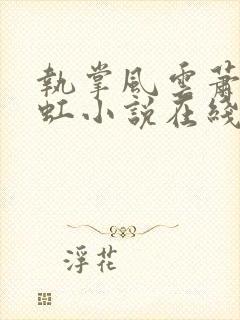 執掌風雲蕭
虹小說在綫
浮花